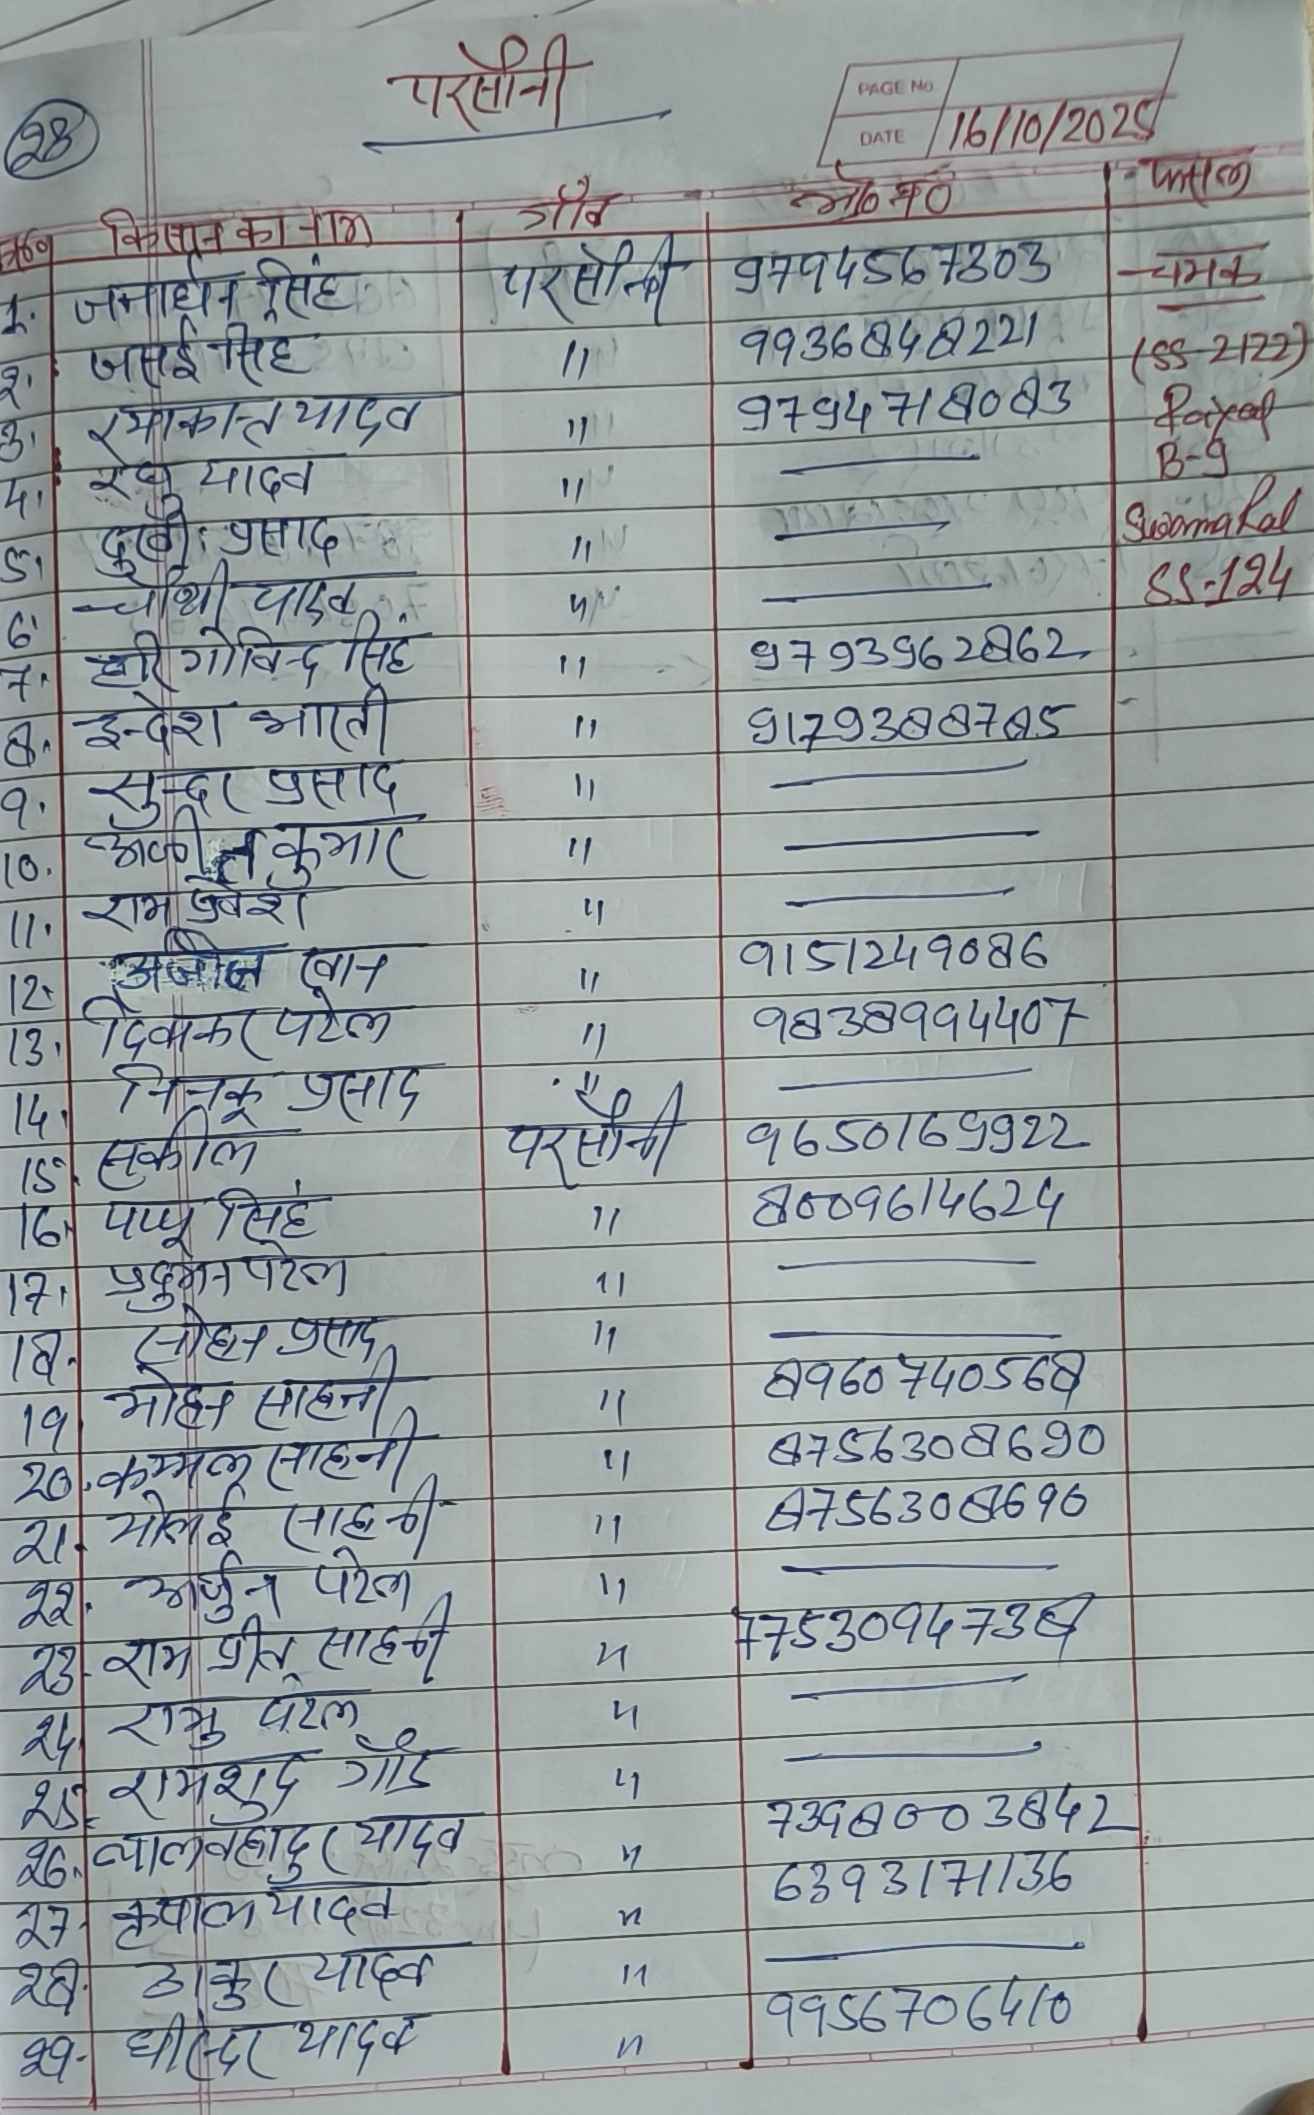 28
परसौनी
PAGE No.
DATE 16/10/2025
क्र०स० किसान का नाम गाँव मो० न० फसल
1. जनार्धन सिंह परसौनी 9794567303 चमक
2. जसई सिंह " 9936848221 (SS-2122)
3. रमाकान्त यादव " 9794718083
4. रघु यादव " — B-9
5. दुखी प्रसाद " —
6. चौथी यादव " — SS-124
7. हरि गोविन्द सिंह " 9793962862
8. इन्देश भारती " 9179388785
9. सुन्दर प्रसाद " —
10. कुमार " —
11. राम प्रवेश " —
12. खान " 9151249086
13. दिवाकर पटेल " 9838994407
14. प्रसाद " —
15. सकील परसौनी 9650169922
16. पप्पू सिंह " 8009614624
17. प्रदुमन पटेल " —
18. सोहन प्रसाद " —
19. मोहन साहनी " 8960740568
20. कम्मलू साहनी " 8756308690
21. मोलई साहनी " 8756308690
22. अर्जुन पटेल " —
23. राम प्रीत साहनी " 7753094738
24. रामु पटेल " —
25. रामशुद गौड " —
26. लालबहादुर यादव " 7398003842
27. कृपाल यादव " 6393171136
28. ठाकुर यादव " —
29. धीरेन्दर यादव " 9956706410